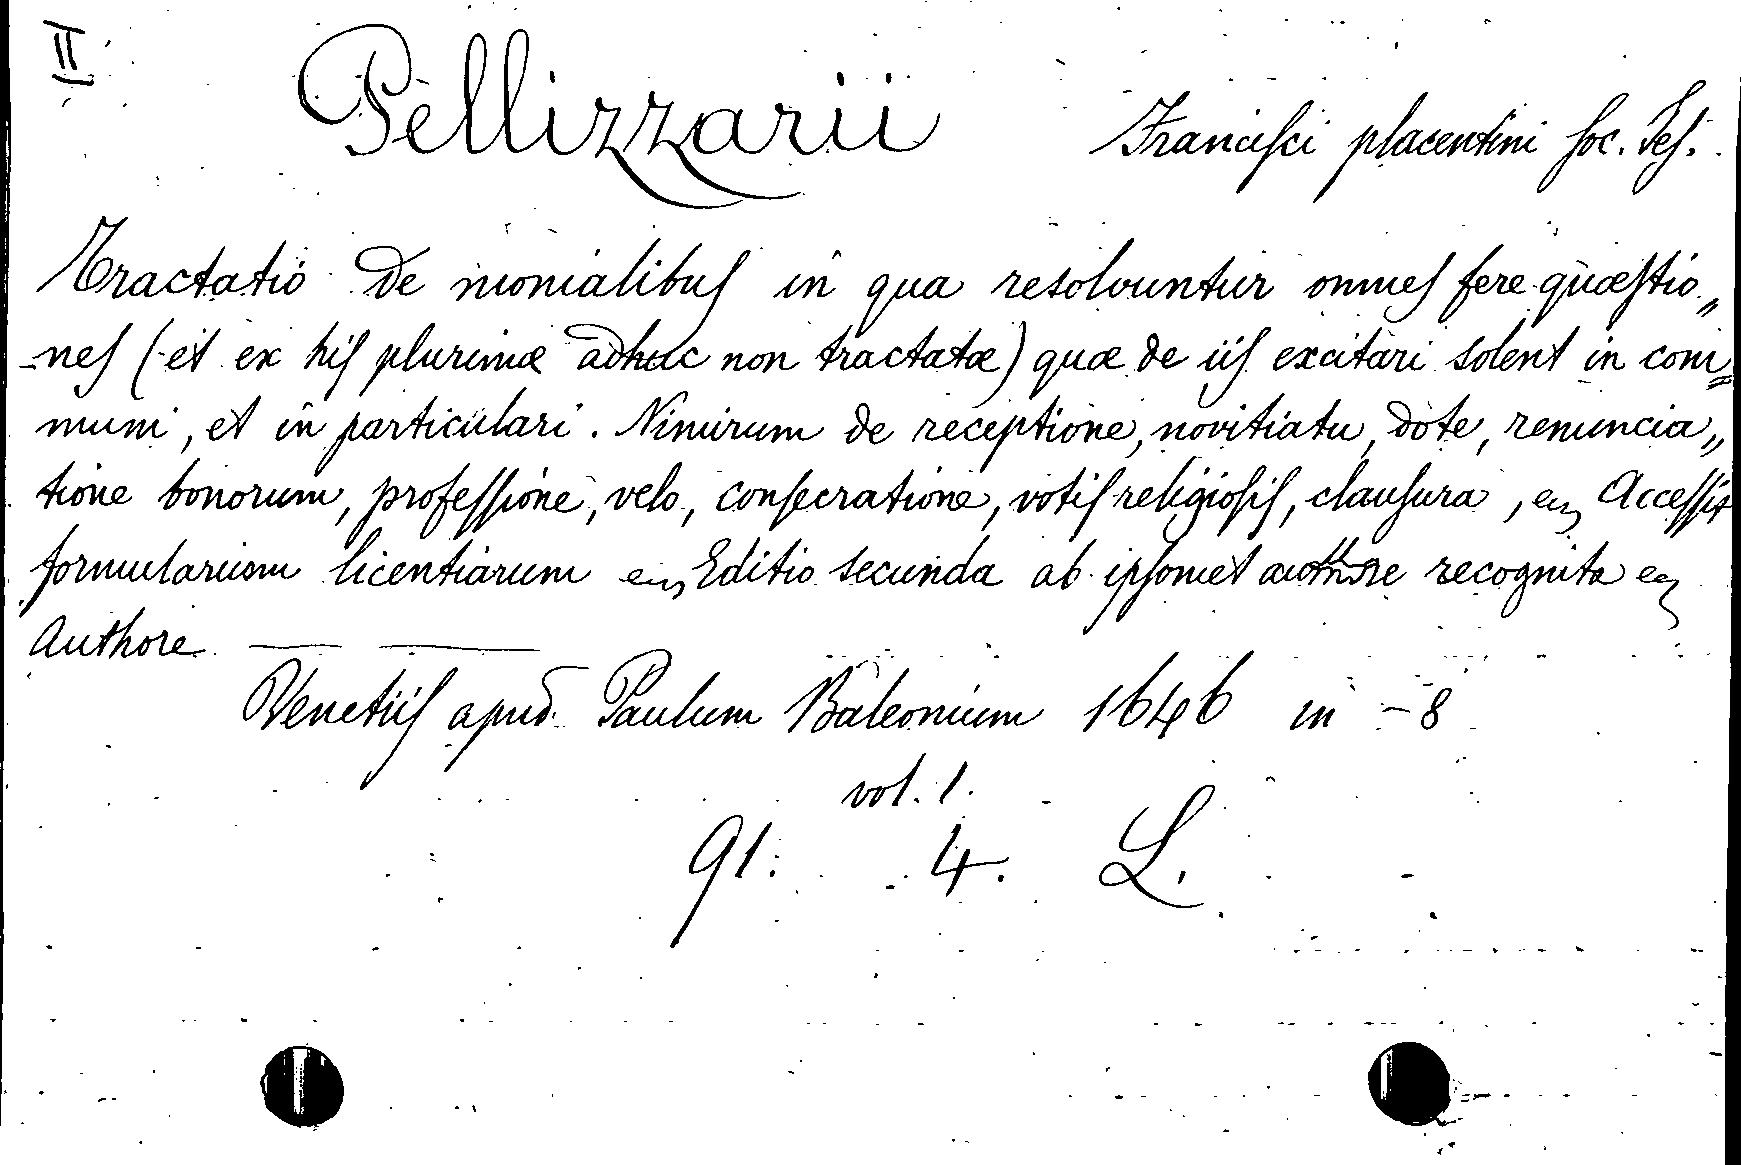 II
Pellizzarii Franciſci placentini ſoc. Jeſ.
Tractatio de monialibuſ in qua resolvuntur omneſ fere quæſtio„
-neſ (et ex hiſ plurimæ adhuc non tractatæ) quæ de iiſ excitari solent in com=
muni, et in particulari. Nimirum de receptione, novitiatu, dote, renuncia„
tione bonorum, profeſſione, velo, conſecratione, votiſ religioſiſ, clauſura, en Acceſſit
formularium licentiarum en Editio secunda ab ipſomet authore recognita en
Authore
Venetiiſ apud Paulum Baleonium 1646 in - 8
vol. 1.
91. 4. L.